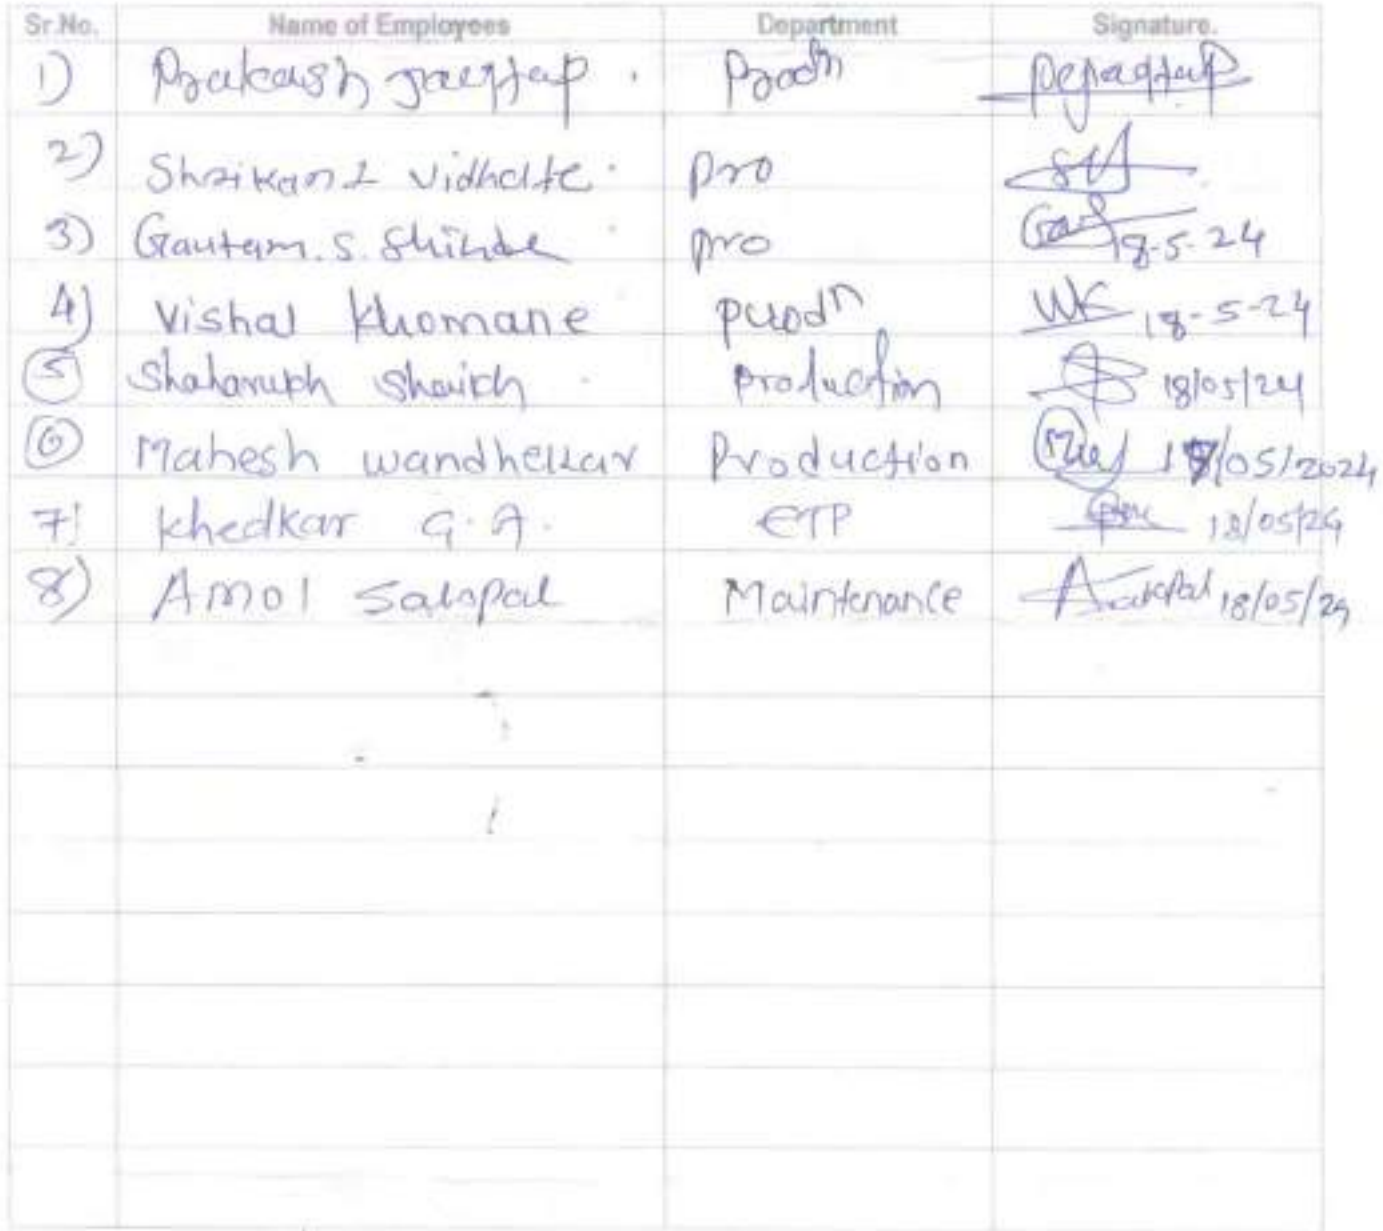 Sr.No. Name of Employees Department Signature.
1) Prakash Jagtap. Prodn
2) Shrikant Vidhate. pro
3) Gautam.S. Shinde pro 18-5-24
4) Vishal Khomane prodn VK 18-5-24
5 Shaharukh Shaikh production 18/05/24
6 Mahesh wandhekar Production 18/05/2024
7! Khedkar G.A. ETP 18/05/24
8) Amol Satpal Maintenance 18/05/24